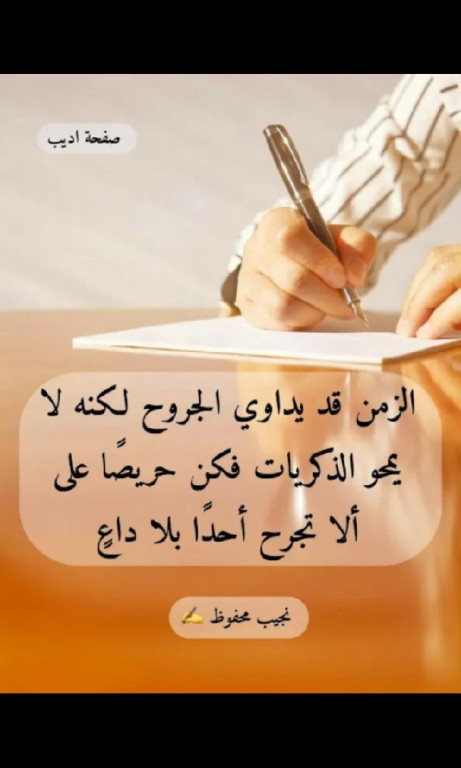 صفحة اديب
الزمن قد يداوي الجروح لكنه لا
يمحو الذكريات فكن حريصًا على
ألا تجرح أحدًا بلا داعٍ
نجيب محفوظ ✍️